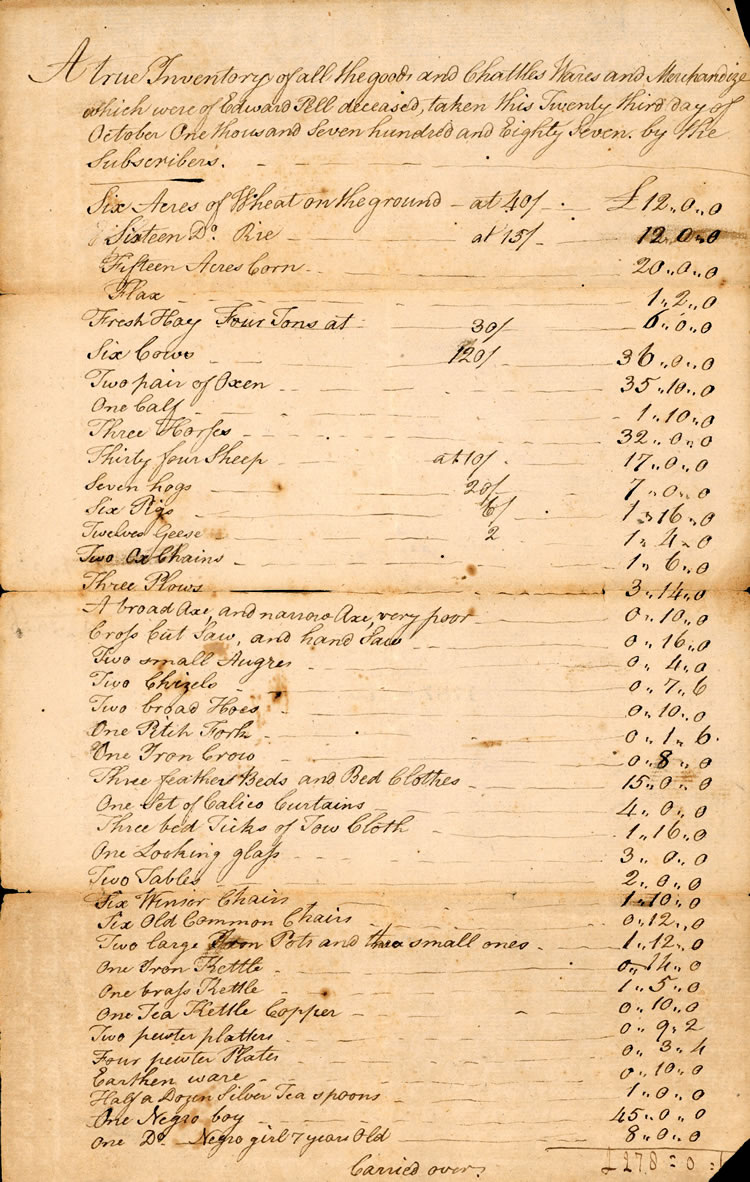 A true Inventory of all the goods and Chattles Wares and Merchandize
which were of Edward Pell deceased, taken this Twenty third day of
October One thousand Seven hundred and Eighty Seven. by the
Subscribers.
Six Acres of Wheat on the ground - at 40/ £12,,0,,0
Sixteen Do. Rie at 15/ 12,,0,,0
Fifteen Acres Corn 20,,0,,0
Flax 1,,2,,0
Fresh Hay Four Tons at 30/ 6,,0,,0
Six Cows 120/ 36,,0,,0
Two pair of Oxen 35,,10,,0
One Calf 1,,10,,0
Three Horses 32,,0,,0
Thirty four Sheep at 10/ 17,,0,,0
Seven hogs 20/ 7,,0,,0
Six Pigs 6/ 1,,16,,0
Twelves Geese 2 1,,4,,0
Two Ox Chains 1,,6,,0
Three Plows 3,,14,,0
A broad Axe, and narrow Axe, very poor 0,,10,,0
Cross Cut Saw, and hand Saw 0,,16,,0
Two small Augres 0,,4,,0
Two Chizels 0,,7,,6
Two broad Hoes 0,,10,,0
One Pitch Fork 0,,1,,6
One Iron Crow 0,,8,,0
Three feather Beds and Bed Clothes 15,,0,,0
One Set of Calico Curtains 4,,0,,0
Three bed Ticks of Tow Cloth 1,,16,,0
One Looking glass 3,,0,,0
Two Tables 2,,0,,0
Six Winsor Chairs 1,,10,,0
Six Old Common Chairs 0,,12,,0
Two large Iron Pots and three small ones 1,,12,,0
One Iron Kettle 0,,14,,0
One brass Kettle 1,,5,,0
One Tea Kettle Copper 0,,10,,0
Two pewter platters 0,,9,,2
Four pewter Plates 0,,3,,4
Earthen ware 0,,10,,0
Half a Dozen Silver Tea spoons 1,,0,,0
One Negro boy 45,,0,,0
One Do. Negro girl 7 years Old 8,,0,,0
Carried over. £278=0=